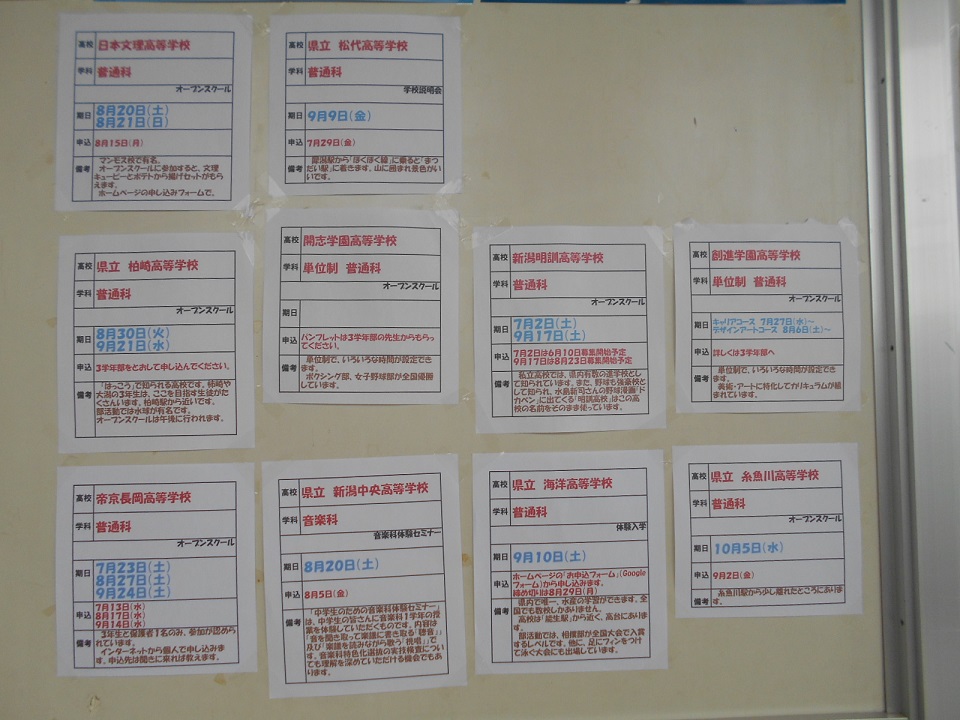 高校 日本文理高等学校
学科 普通科
オープンスクール
期日 8月20日(土)
8月21日(日)
申込 8月15日(月)
備考 マンモス校で有名。
オープンスクールに参加すると、文理
キューピーとポテトから揚げセットがもら
えます。
ホームページの申し込みフォームで。
高校 県立 松代高等学校
学科 普通科
学校説明会
期日 9月9日(金)
申込 7月29日(金)
備考 犀潟駅から「ほくほく線」に乗ると「まつ
だい駅」に着きます。山に囲まれ景色がい
いです。
高校 県立 柏崎高等学校
学科 普通科
オープンスクール
期日 8月30日(火)
9月21日(水)
申込 3学年部をとおして申し込んでください。
備考 「はっこう」で知られる高校です。柿崎や
大潟の3年生は、ここを目指す生徒がた
くさんいます。柏崎駅から近いです。
部活動では水球が有名です。
オープンスクールは午後に行われます。
高校 開志学園高等学校
学科 単位制 普通科
オープンスクール
期日
申込 パンフレットは3学年部の先生からもらっ
てください。
備考 単位制で、いろいろな時間が設定でき
ます。
ボクシング部、女子野球部が全国優勝
しています。
高校 新潟明訓高等学校
学科 普通科
オープンスクール
期日 7月2日(土)
9月17日(土)
申込 7月2日は6月10日募集開始予定
9月17日は8月23日募集開始予定
備考 私立高校では、県内有数の進学校とし
て知られています。また、野球も強豪校と
して知られ、水島新司さんの野球漫画「ド
カベン」に出てくる「明訓高校」はこの高
校の名前をそのまま使っています。
高校 創進学園高等学校
学科 単位制 普通科
オープンスクール
期日 キャリアコース 7月27日(水)~
デザインアートコース 8月6日(土)~
申込 詳しくは3学年部へ
備考 単位制で、いろいろな時間が設定できま
す。
美術・アートに特化してカリキュラムが組
まれています。
高校 帝京長岡高等学校
学科 普通科
オープンスクール
期日 7月23日(土)
8月27日(土)
9月24日(土)
申込 7月13日(水)
8月17日(水)
9月14日(水)
備考 3年生と保護者1名のみ、参加が認めら
れています。
インターネットから個人で申し込みま
す。申込先は聞きに来れば教えます。
高校 県立 新潟中央高等学校
学科 音楽科
音楽科体験セミナー
期日 8月20日(土)
申込 8月5日(金)
備考 「中学生のための音楽科体験セミナー」
は、中学生の皆さんに音楽科1学年の授
業を体験していただくものです。内容は
「音を聞き取って楽譜に書き取る「聴音」」
及び「楽譜を読みながら歌う「視唱」」で
す。音楽科特色化選抜の実技検査につい
ても理解を深めていただける機会でもあ
ります。
高校 県立 海洋高等学校
学科 普通科
体験入学
期日 9月10日(土)
申込 ホームページの「お申込フォーム」(Google
フォーム)から申し込みます。
締め切りは8月29日(月)
備考 県内で唯一、水産の学習ができます。全
国でも数校しかありません。
高校は「能生駅」から近く、高台にありま
す。
部活動では、相撲部が全国大会で入賞
するレベルです。他に、足にフィンをつけ
て泳ぐ大会にも出場しています。
高校 県立 糸魚川高等学校
学科 普通科
オープンスクール
期日 10月5日(水)
申込 9月2日(金)
備考 糸魚川駅から少し離れたところにありま
す。